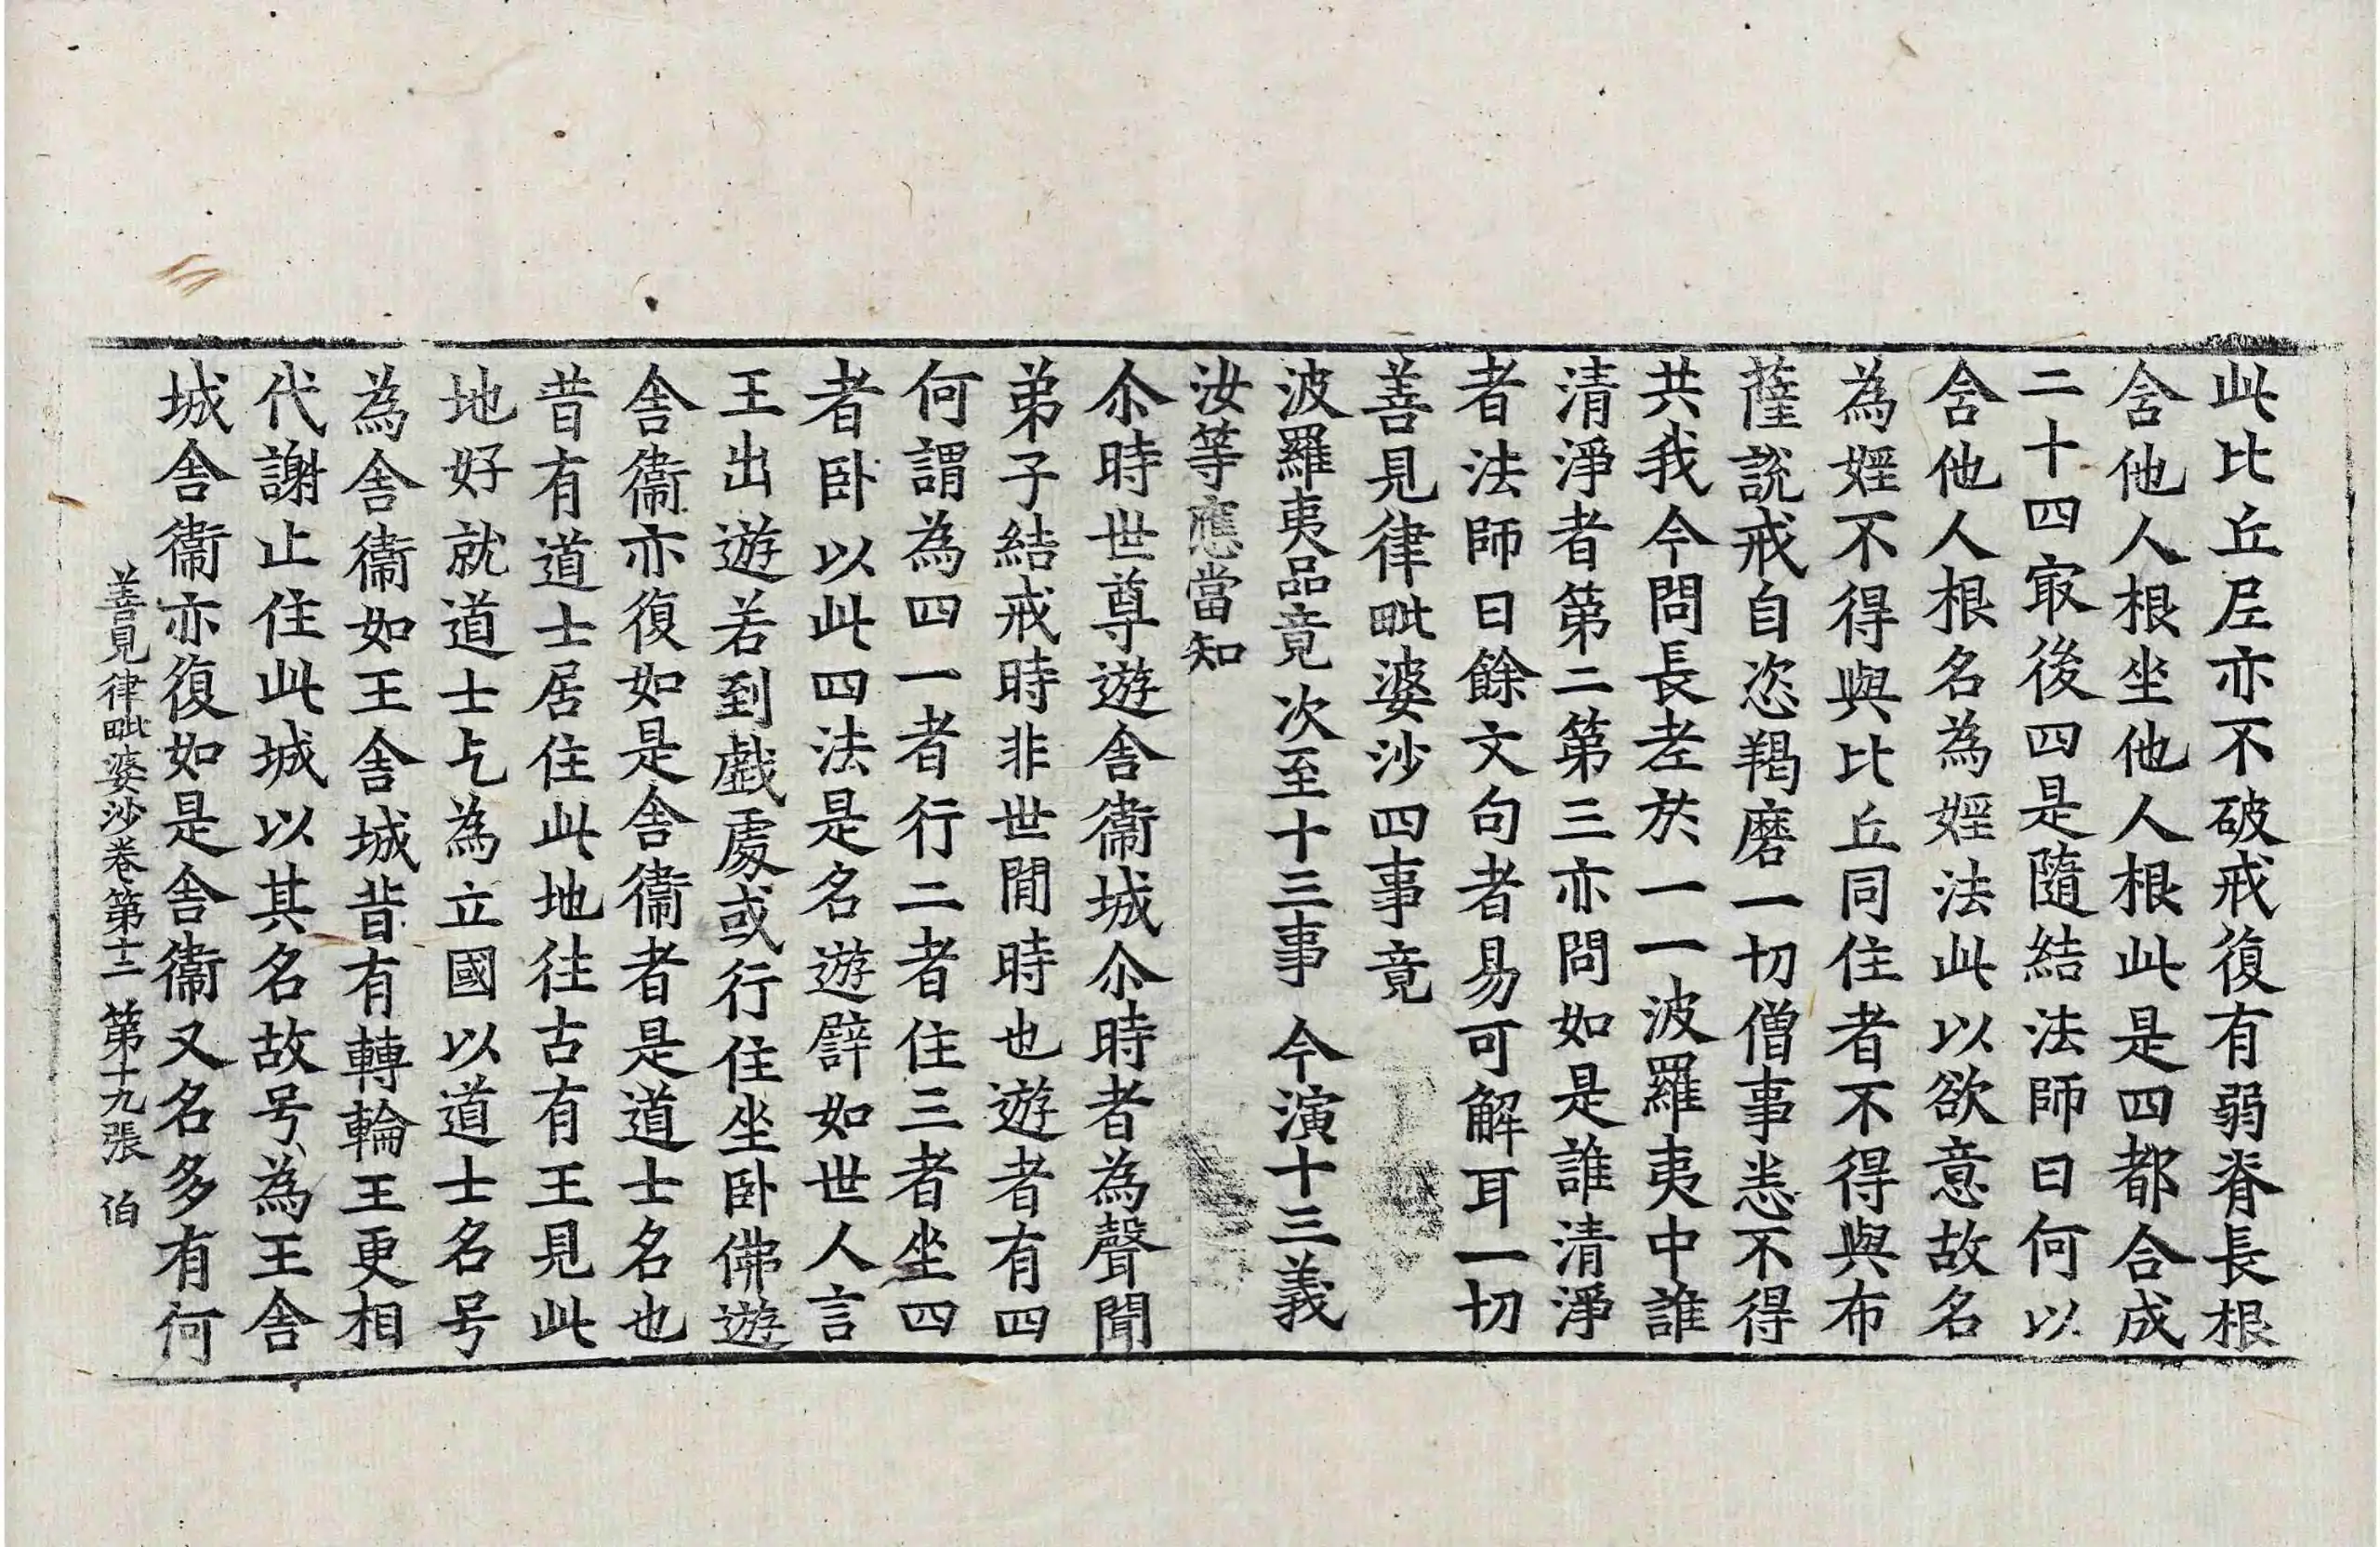 此比丘尼亦不破戒復有弱脊長根
含他人根坐他人根此是四都合成
二十四冣後四是隨結法師曰何以
含他人根名為婬法此以欲意故名
為婬不得與比丘同住者不得與布
薩說戒自恣羯磨一切僧事悉不得
共我今問長老於一一波羅夷中誰
清淨者第二第三亦問如是誰清淨
者法師曰餘文句者易可解耳一切
善見律毗婆沙四事竟
波羅夷品竟 次至十三事 今演十三義
汝等應當知
尒時世尊遊舍衞城尒時者為聲聞
弟子結戒時非世閒時也遊者有四
何謂為四一者行二者住三者坐四
者卧以此四法是名遊譬如世人言
王出遊若到戱處或行住坐卧佛遊
舍衞亦復如是舍衞者是道士名也
昔有道士居住此地往古有王見此
地好就道士乞為立國以道士名号
為舍衞如王舍城昔有轉輪王更相
代謝止住此城以其名故号為王舍
城舍衞亦復如是舍衞又名多有何
善見律毗婆沙卷第十二 第十九張 伯